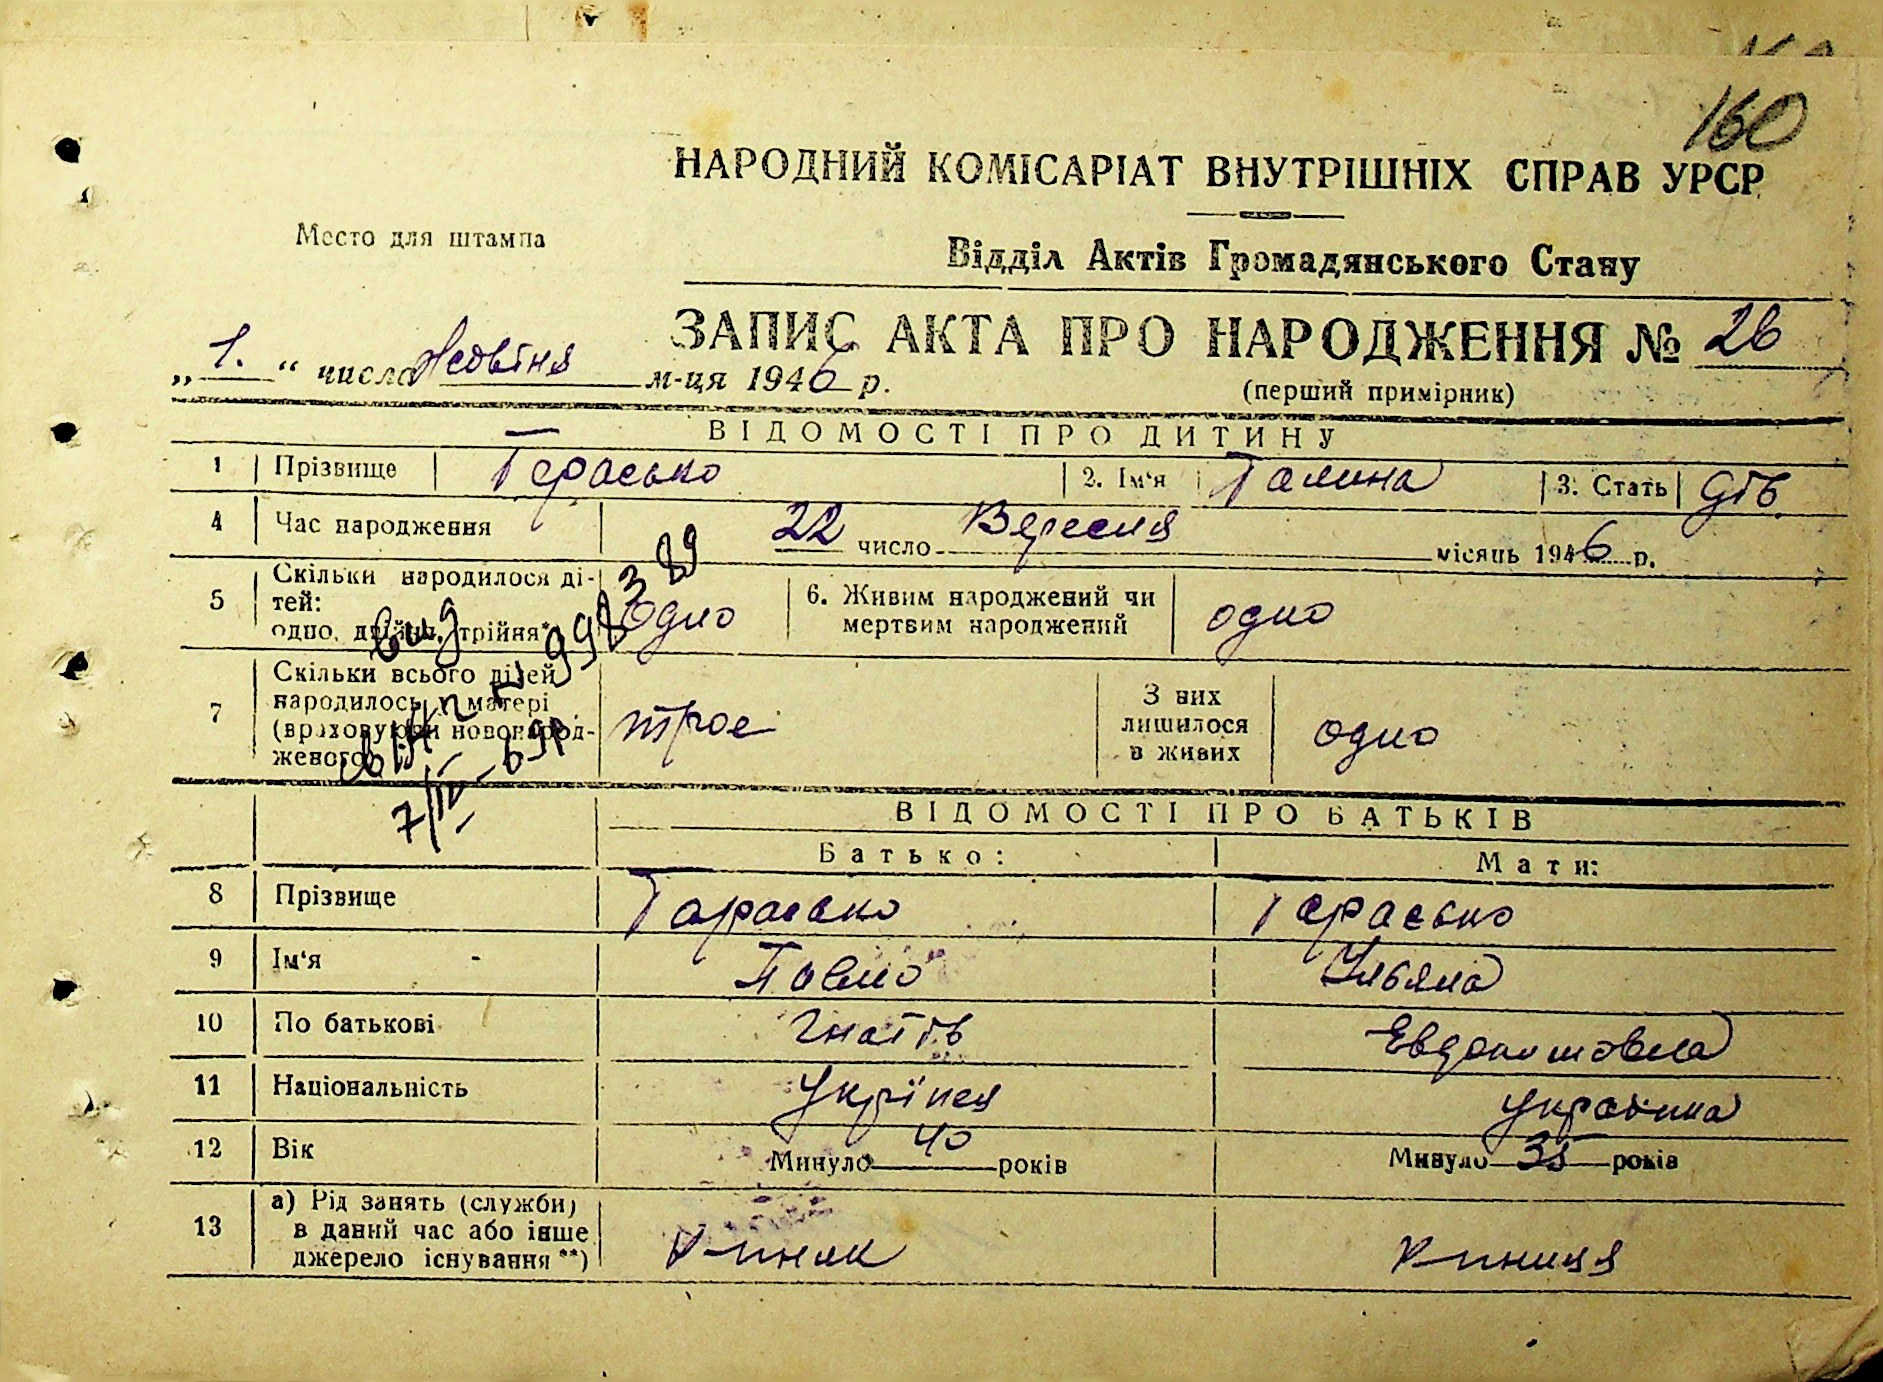 160
НАРОДНИЙ КОМІСАРІАТ ВНУТРІШНІХ СПРАВ УРСР
Место для штампа
Відділ Актів Громадянського Стану
ЗАПИС АКТА ПРО НАРОДЖЕННЯ № 26
„ 1. “ числа Жовтня м-ця 1946 р.
(перший примірник)
ВІДОМОСТІ ПРО ДИТИНУ
1 Прізвище Герасько 2. Ім'я Галина 3. Стать дів.
4 Час народження 22 число Вересня місяць 1946 р.
5 Скільки народилося ді-
тей:
одно, двійня, трійня* одно 6. Живим народжений чи
мертвим народжений одно
7 Скільки всього дітей
народилось у матері
(враховуючи новонарод-
женого) трое З них
лишилося
в живих одно
7/IV
ВІДОМОСТІ ПРО БАТЬКІВ
Батько: Мати:
8 Прізвище Гарасько Герасько
9 Ім'я Павло Ульяна
10 По батькові Гнатів Евдокимовна
11 Національність Украінка
12 Вік Минуло 40 років Минуло 35 років
13 а) Рід занять (служби)
в даний час або інше
джерело існування **)